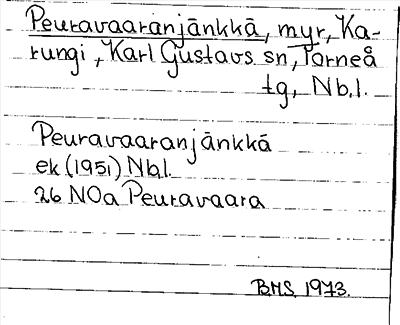 Peuravaaranjänkkä, myr, Ka-
rungi, Karl Gustavs sn, Torneå
tg, Nb.l.
Peuravaaranjänkkä
ek (1951) Nb.l.
26 NOa Peuravaara
BHS 1973.